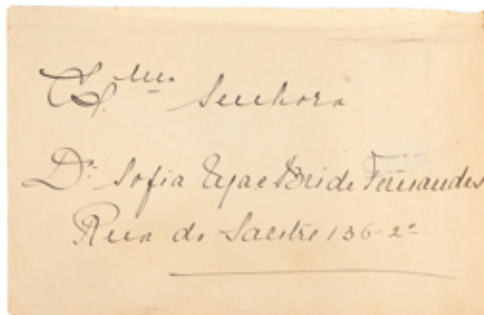 Ex.ma Senhora
D.ª Sofia Fernandes
Rua do Salitre 136-2º